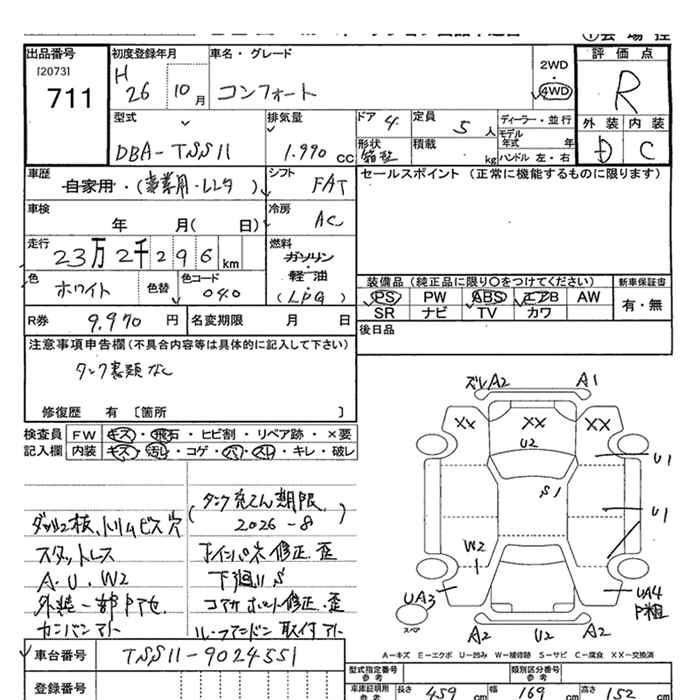 出品番号 初度登録年月 車名・グレード 評価点
[2073] H
711 26 10月 コンフォート 2WD・4WD R
型式 排気量 ドア 4 定員 5人 ディーラー・並行 外装 内装
モデル年式 年
DBA-TSS11 1.990cc 形状 箱型 積載 kg ハンドル 左・右 D C
車歴 シフト セールスポイント (正常に機能するものに限ります)
自家用・(事業用・レンタ) FAT
車検 冷房
年 月( 日) AC
走行 燃料
23万2千296km ガソリン・軽油
色 色替 色コード 装備品 (純正品に限り○をつけてください) 新車保証書
ホワイト 040 (LPG) PS PW ABS エアB AW 有・無
R券 9.970円 名変期限 月 日 SR ナビ TV カワ
後日品
注意事項申告欄(不具合内容等は具体的に記入して下さい)
タンク書類なし
修復歴 有 [箇所 ]
検査員 FW キズ・飛石・ヒビ割・リペア跡・×要
記入欄 内装 キズ・汚レ・コゲ・穴・スレ・キレ・破レ
ズレA2 A1
XX XX XX
U2
S1
U1
U1
W2
UA3
UA4
P粗
スペア
A2 U2 A2
(タンク充てん期限
2026-8)
スタットレス
A.U.W2 下廻りS
カンバンアト
A-キズ E-エクボ U-凹み W-補修跡 S-サビ C-腐食 XX-交換済
車台番号 TSS11-9024551
登録番号
型式指定番号 類別区分番号
参考 参考
車庫証明用 長さ 459cm 幅 169cm 高さ 152cm
参考